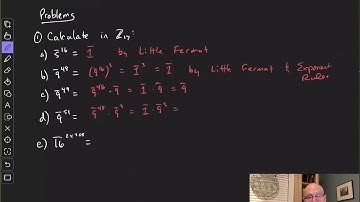 Problems
① Calculate in ℤ₁₇:
a) 3̅¹⁶ = 1̅ by Little Fermat
b) 9̅⁴⁸ = (9̅¹⁶)³ = 1̅³ = 1̅ by Little Fermat & Exponent Rules
c) 9̅⁴⁹ = 9̅⁴⁸ · 9̅ = 1̅ · 9̅ = 9̅
d) 9̅⁵¹ = 9̅⁴⁸ · 9̅³ = 1̅ · 9̅³ =